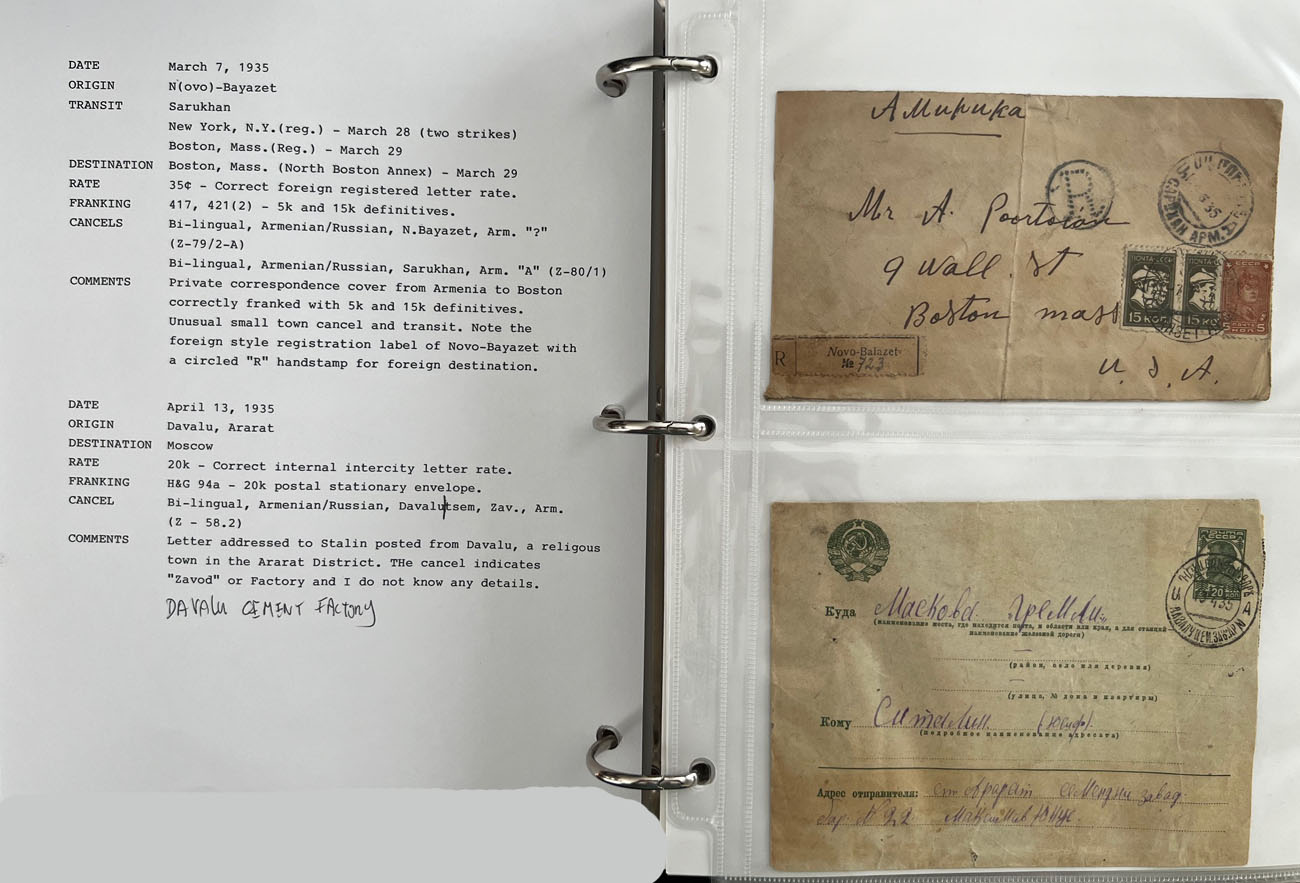 DATE March 7, 1935
ORIGIN N(ovo)-Bayazet
TRANSIT Sarukhan
New York, N.Y.(reg.) - March 28 (two strikes)
Boston, Mass.(Reg.) - March 29
DESTINATION Boston, Mass. (North Boston Annex) - March 29
RATE 35¢ - Correct foreign registered letter rate.
FRANKING 417, 421(2) - 5k and 15k definitives.
CANCELS Bi-lingual, Armenian/Russian, N.Bayazet, Arm. "?"
(Z-79/2-A)
Bi-lingual, Armenian/Russian, Sarukhan, Arm. "A" (Z-80/1)
COMMENTS Private correspondence cover from Armenia to Boston
correctly franked with 5k and 15k definitives.
Unusual small town cancel and transit. Note the
foreign style registration label of Novo-Bayazet with
a circled "R" handstamp for foreign destination.
DATE April 13, 1935
ORIGIN Davalu, Ararat
DESTINATION Moscow
RATE 20k - Correct internal intercity letter rate.
FRANKING H&G 94a - 20k postal stationary envelope.
CANCEL Bi-lingual, Armenian/Russian, Davalutsem, Zav., Arm.
(Z - 58.2)
COMMENTS Letter addressed to Stalin posted from Davalu, a religous
town in the Ararat District. THe cancel indicates
"Zavod" or Factory and I do not know any details.
DAVALU CEMENT FACTORY
Амирика
R
САРУХАН АРМ.
35
Mr A. Poortoian
9 Wall. St
Boston mass
U. S. A.
ПОЧТА СССР
15 КОП.
15 КОП
5 5
R Novo-Baïazet
№ 723
ПОЧТА
СССР
20
КОП
35
ДАВАЛУ ЦЕМ.ЗАВ.АРМ
А
Куда Масков Гремли
(наименование места, где находится почта, и области или края, а для станций
наименование железной дороги)
(район, село или деревня)
(улица, № дома и квартиры)
Кому Ситалин (Юсуф).
(подробное наименование адресата)
Адрес отправителя: ст Арарат семендни завад
бар. № 22